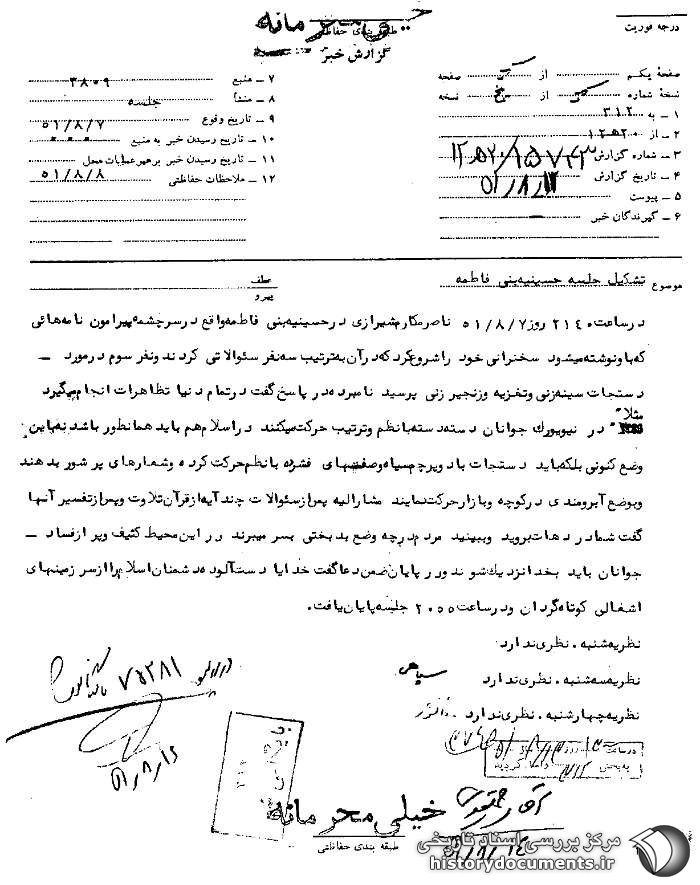 خیلی محرمانه
طبقه بندی حفاظتی
گزارش خبر
درجه فوریت
صفحهٔ یکم از صفحه
نسخهٔ شماره از نسخه
۱ – به ۳۱۲
۲ – از ۲۰ ه ۱۲
۳ – شماره گزارش
۴ – تاریخ گزارش
۵ – پیوست
۶ – گیرندگان خبر
۷ – منبع ۳۸۰۹
۸ – منشأ جلسه
۹ – تاریخ وقوع ۵۱/۸/۷
۱۰ – تاریخ رسیدن خبر به منبع
۱۱ – تاریخ رسیدن خبر برهبرعملیات محل
۱۲ – ملاحظات حفاظتی ۵۱/۸/۸
موضوع تشکیل جلسه حسینیه بنی فاطمه
عطف
پیرو
درساعت ۲۱۴۰ روز ۵۱/۸/۷ ناصرمکارم شیرازی درحسینیه بنی فاطمه واقع درسرچشمه پیرامون نامه هائی
که باو نوشته میشود سخنرانی خود را شروع کرد که در آن به ترتیب سه نفر سئوالاتی کردند ونفر سوم درمورد –
دستجات سینه زنی وتغزیه وزنجیر زنی پرسید نامبرده در پاسخ گفت درتمام دنیا تظاهرات انجام میگیرد
مثلا
در نیویورک جوانان دسته دسته بانظم وترتیب حرکت میکنند در اسلام هم باید همانطور باشد نه باین
وضع کنونی بلکه باید دستجات بادو پرچم سیاه وصفتهای فشرده بانظم حرکت کرده وشعارهای پر شور بدهند
وبوضع آبرومندی درکوچه وبازار حرکت نمایند مشارالیه پس از سئوالات چند آیه از قرآن تلاوت وپس از تفسیر آنها
گفت شما در دهات بروید وببینید مردم درچه وضع بدبختی بسر میبرند در این محیط کثیف وپر از فساد –
جوانان باید بخدا نزدیک شوند ودر پایان ضمن دعا گفت خدایا دست آلوده دشمنان اسلام را از سر زمینهای
اشغالی کوتاه گردان ودرساعت ۲۰۰۵ جلسه پایان یافت.
نظریه شنبه. نظری ندارد
نظریه سه شنبه. نظری ندارد
نظریه چهارشنبه. نظری ندارد.
۷۵۳۸۱
۵۱/۸/۱۵
خیلی محرمانه
طبقه بندی حفاظتی
۵۱/۸/۱۴
مرکز بررسی اسناد تاریخی
historydocuments.ir